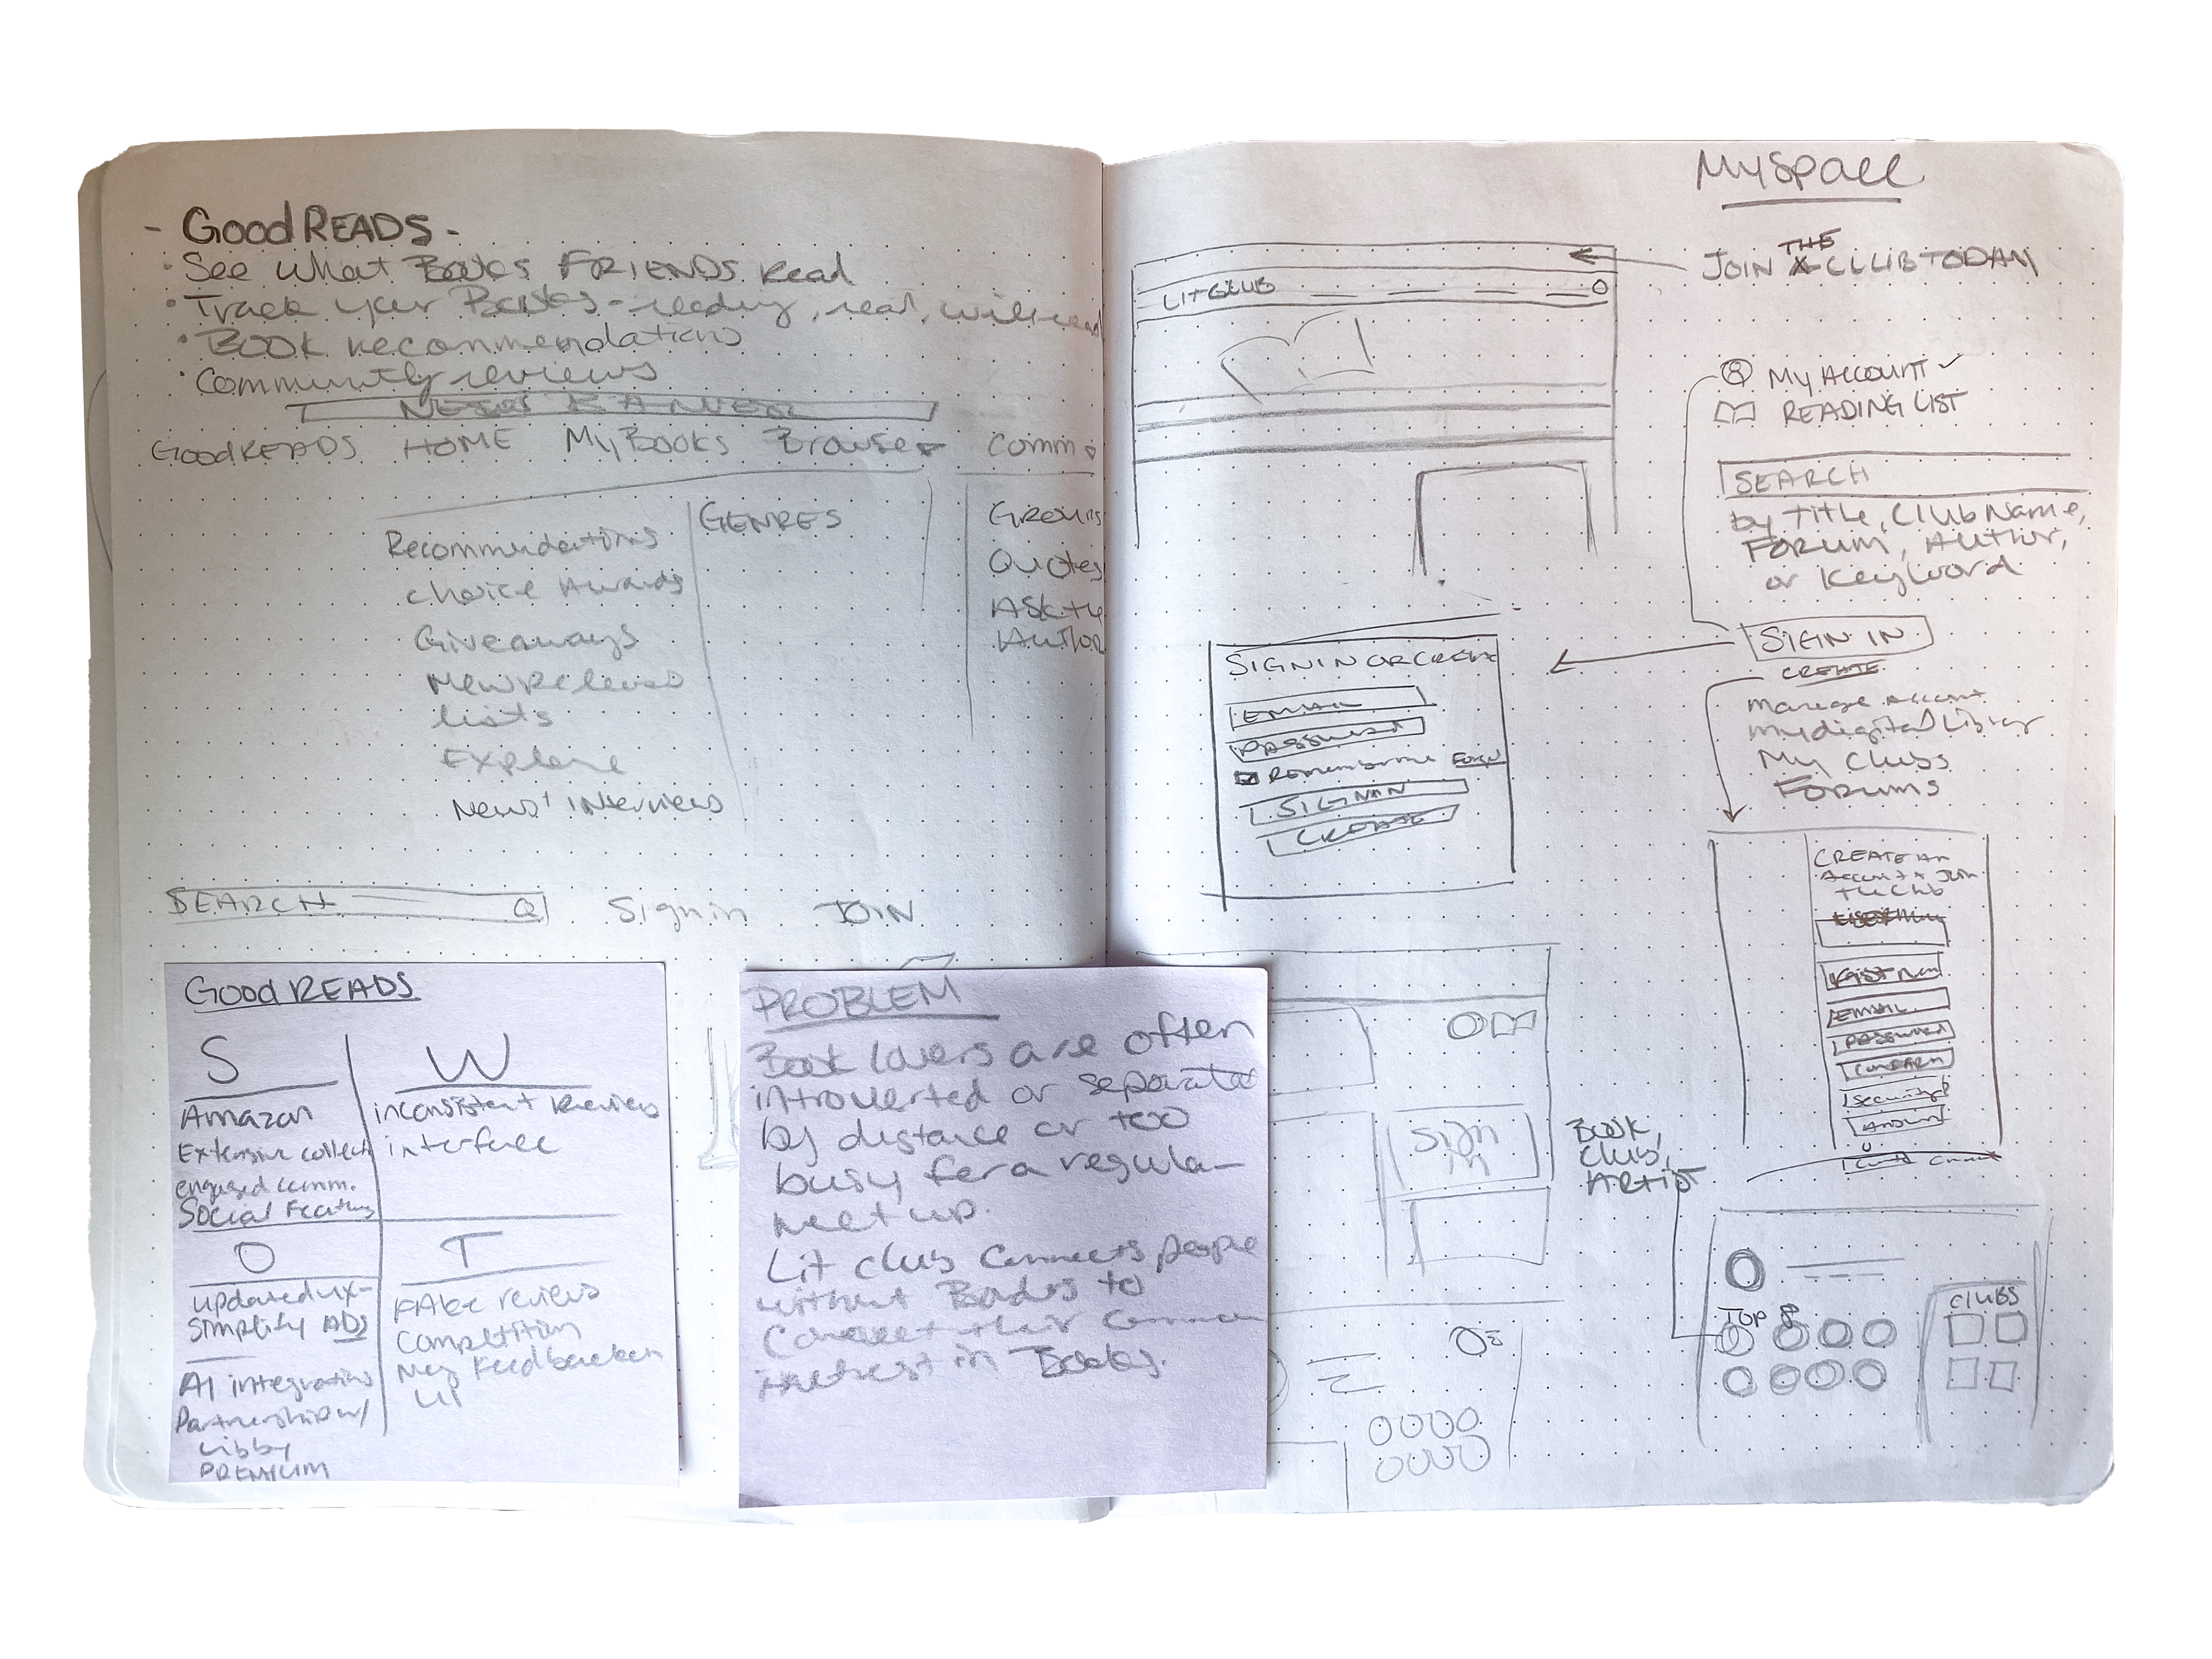 - GoodREADS -
· See what Books FRIENDS read
· Track your Books - reading, read, will read
· BOOK recommendations
· Community reviews
GoodREADS HOME My BOOKS Browse Comm
Recommendations
Choice Awards
Giveaways
New Releases
lists
Explore
News + Interviews
GENRES
Groups
Quotes
Ask the
Author
SEARCH Sign in JOIN
GoodREADS
S
Amazon
Extensive collect
engaged comm.
Social Features
W
inconsistent Review
interface
O
updated ux-
Simplify ADS
AI integration
Partnership w/
Libby
PREMIUM
T
FAke reviews
Competition
Neg Feedback on
UI
PROBLEM
Book lovers are often
introverted or separated
by distance or too
busy for a regular
meet up.
Lit club connects people
without Borders to
Connect their common
interest in Books.
MySpace
JOIN THE CLUB TODAY
LITCLUB
My ACCOUNT
READING LIST
SEARCH
by Title, Club Name,
FORUM, AUTHOR,
or Keyword
SIGN IN
CREATE
Manage Account
My digital Library
My Clubs
FORUMS
SIGN IN OR CREATE
EMAIL
PASSWORD
Remember me
SIGN IN
CREATE
CREATE AN
Account + Join
the Club
EMAIL
PASSWORD
CONFIRM
Security
Sign
in
Book,
Club,
ARTIST
TOP 8
CLUBS